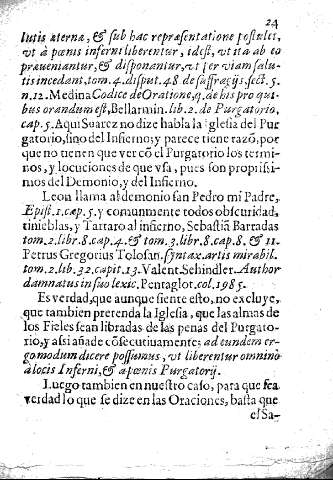 24
lutis æternæ, & sub hac repræsentatione postulet,
vt à pœnis inferni liberentur, idest, vt ita ab eo
præueniantur, & disponantur, vt per viam salu-
tis incedant, tom. 4. disput. 48 de suffragijs, sect. 5.
n. 12. Medina Codice de Oratione, q. de his pro qui
bus orandum est, Bellarmin. lib. 2. de Purgatorio,
cap. 5. Aqui Suarez no dize habla la Iglesia del Pur
gatorio, sino del Infierno; y parece tiene razõ, por
que no tienen que ver cõ el Purgatorio los termi-
nos, y locuciones de que vsa, pues son propijssi-
mos del Demonio, y del Infierno.
Leon llama al demonio san Pedro mi Padre,
Epist. 1. cap. 5. y comunmente todos obscuridad,
tinieblas, y Tartaro al infierno, Sebastiã Barradas
tom. 2. lib. 8. cap. 4. & tom. 3. lib. 8. cap. 8. & 11.
Petrus Gregorius Tolosan. syntax. artis mirabil.
tom. 2. lib. 32. capit. 13. Valent. Sehindler. Author
damnatus in suo lexic. Pentaglot. col. 1985.
Es verdad, que aunque siente esto, no excluye,
que tambien pretenda la Iglesia, que las almas de
los Fieles sean libradas de las penas del Purgato-
rio, y assi añade cõsecutiuamente: ad eundem er-
go modum dicere possumus, vt liberentur omnino
à locis Inferni, & a pœnis Purgatorij.
Luego tambien en nuestro caso, para que sea
verdad lo que se dize en las Oraciones, basta que
el Sa-